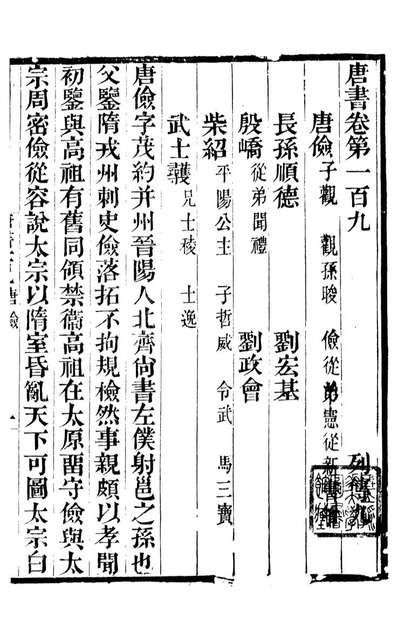 唐書卷第一百九
列傳九
唐儉子觀 觀孫晙 儉從弟憲從新書增
長孫順德 劉宏基
殷嶠從弟聞禮 劉政會
柴紹平陽公主 子哲威 令武 馬三寶
武士彠兄士稜 士逸
唐儉字茂約并州晉陽人北齊尙書左僕射邕之孫也
父鑒隋戎州刺史儉落拓不拘規檢然事親頗以孝聞
初鑒與高祖有舊同領禁衞高祖在太原畱守儉與太
宗周密儉從容說太宗以隋室昏亂天下可圖太宗白